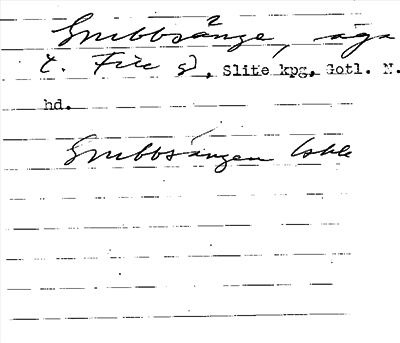 Snibbsänge, äga
t. File sn, Slite kpg, Gotl. N.
hd.
Snibbsängen